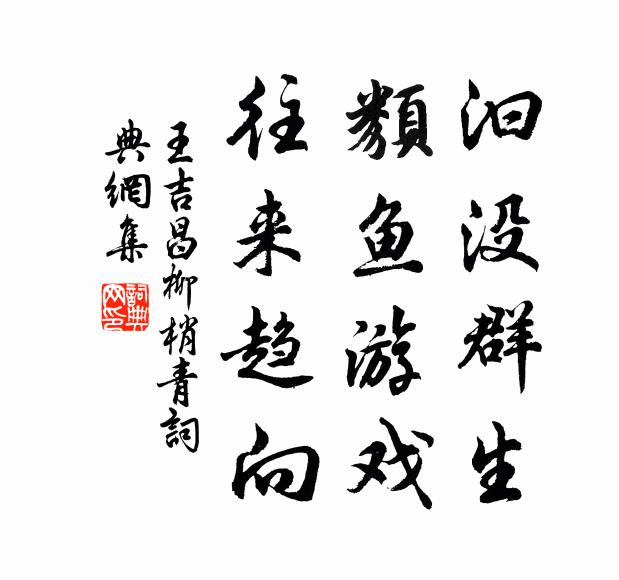 汩没群生
類鱼游戏
往来趋向
王吉昌柳梢青詞
典網集
詞典網印